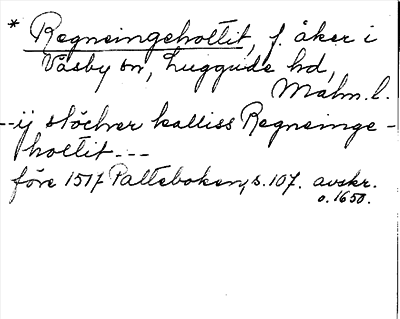 * Regneingeholtit, f. åker i
Väsby sn, Luggude hd,
Malm. l.
--ij støcher kalliss Regneinge-
holtit ---
före 1517 Palteboken, s. 107. avskr.
o. 1650.